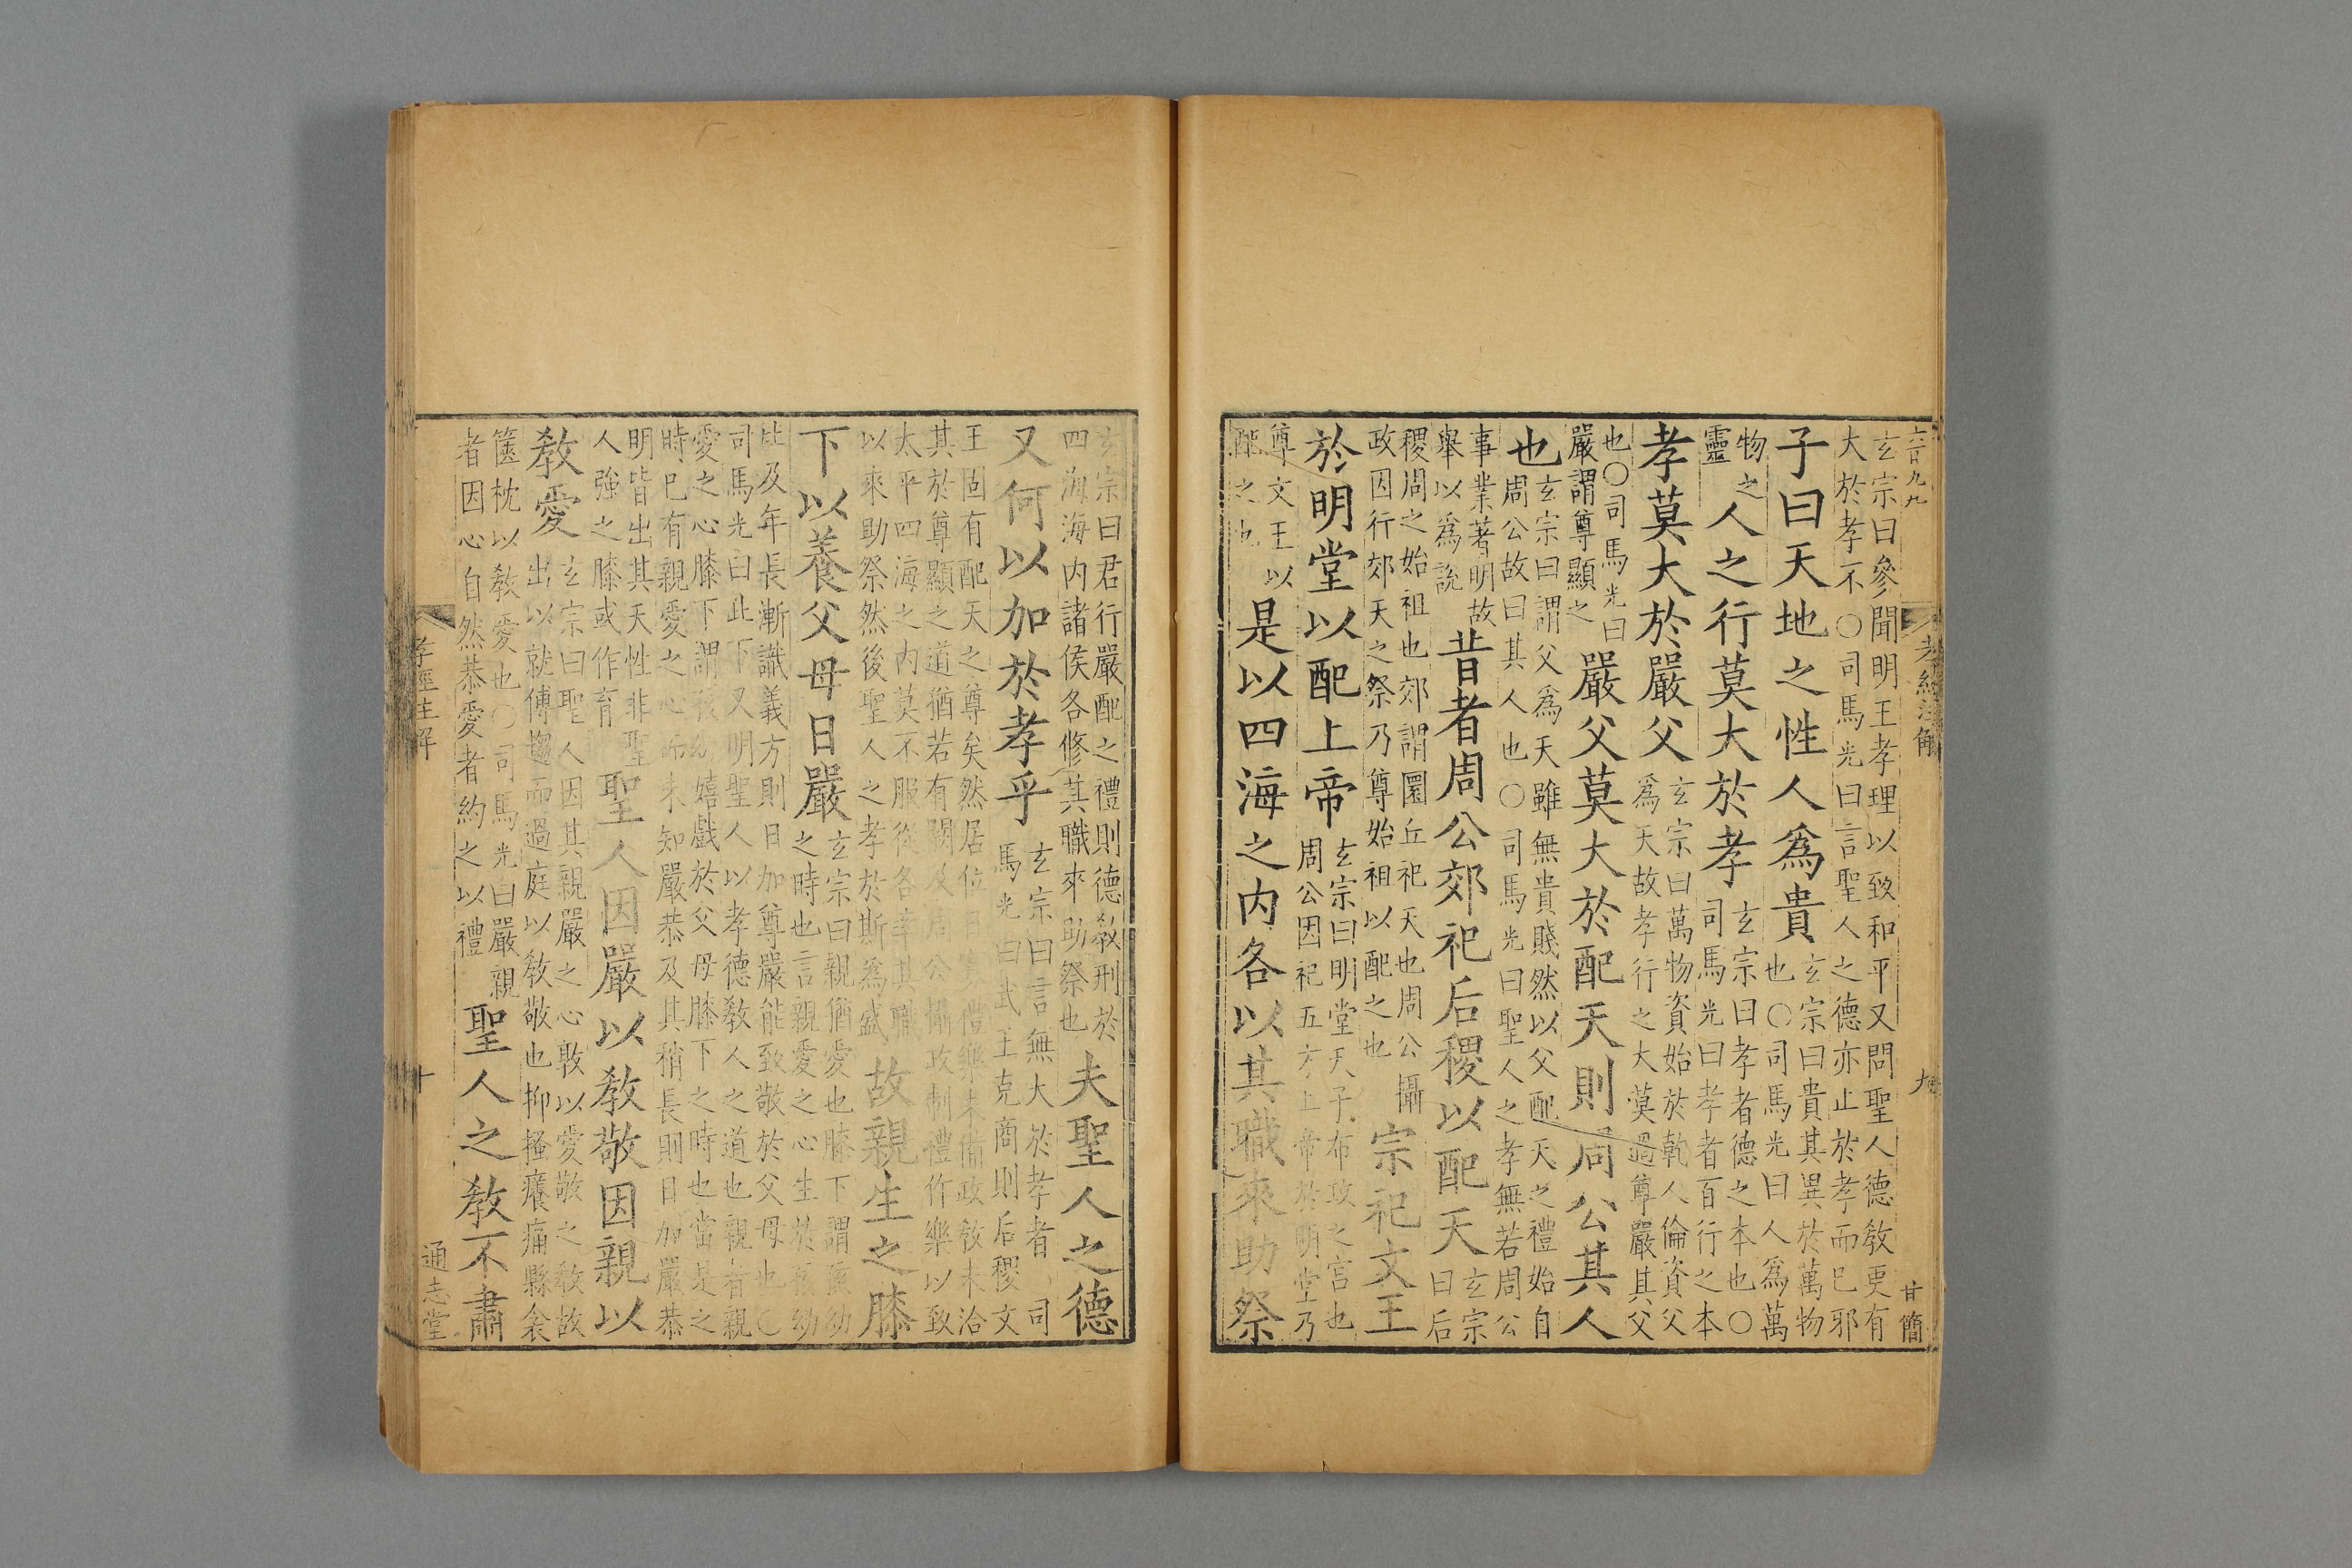 六百九九
孝經注解
九
甘簡
玄宗曰參聞明王孝理以致和平又問聖人德敎更有
大於孝不○司馬光曰言聖人之德亦止於孝而已邪
子曰天地之性人爲貴
玄宗曰貴其異於萬物
也○司馬光曰人爲萬
物之
靈
人之行莫大於孝
玄宗曰孝者德之本也○
司馬光曰孝者百行之本
孝莫大於嚴父
玄宗曰萬物資始於乾人倫資父
爲天故孝行之大莫過尊嚴其父
也○司馬光曰
嚴謂尊顯之
嚴父莫大於配天則周公其人
也
玄宗曰謂父爲天雖無貴賤然以父配天之禮始自
周公故曰其人也○司馬光曰聖人之孝無若周公
事業著明故
舉以爲說
昔者周公郊祀后稷以配天
玄宗
曰后
稷周之始祖也郊謂圜丘祀天也周公攝
政因行郊天之祭乃尊始祖以配之也
宗祀文王
於明堂以配上帝
玄宗曰明堂天子布政之宫也
周公因祀五方上帝於明堂乃
尊文王以
配之也
是以四海之内各以其職來助祭
玄宗曰君行嚴配之禮則德敎刑於
四海海内諸侯各修其職來助祭也
夫聖人之德
又何以加於孝乎
玄宗曰言無大於孝者 司
馬光曰武王克商則后稷文
王固有配天之尊矣然居位日寡禮樂未備政敎未洽
其於尊顯之道猶若有闕及周公攝政制禮作樂以致
太平四海之内莫不服從各率其職
以來助祭然後聖人之孝於斯爲盛
故親生之膝
下以養父母日嚴
玄宗曰親猶愛也膝下謂孩幼
之時也言親愛之心生於孩幼
比及年長漸識義方則日加尊嚴能致敬於父母也○
司馬光曰此下又明聖人以孝德敎人之道也親者親
愛之心膝下謂孩幼嬉戲於父母膝下之時也當是之
時已有親愛之心而未知嚴恭及其稍長則日加嚴恭
明皆出其天性非聖
人強之膝或作育
聖人因嚴以敎敬因親以
敎愛
玄宗曰聖人因其親嚴之心敦以愛敬之敎故
出以就傅趨而過庭以敎敬也抑搔癢痛縣衾
篋枕以敎愛也○司馬光曰嚴親
者因心自然恭愛者約之以禮
聖人之敎不肅
孝經注解
十
通志堂